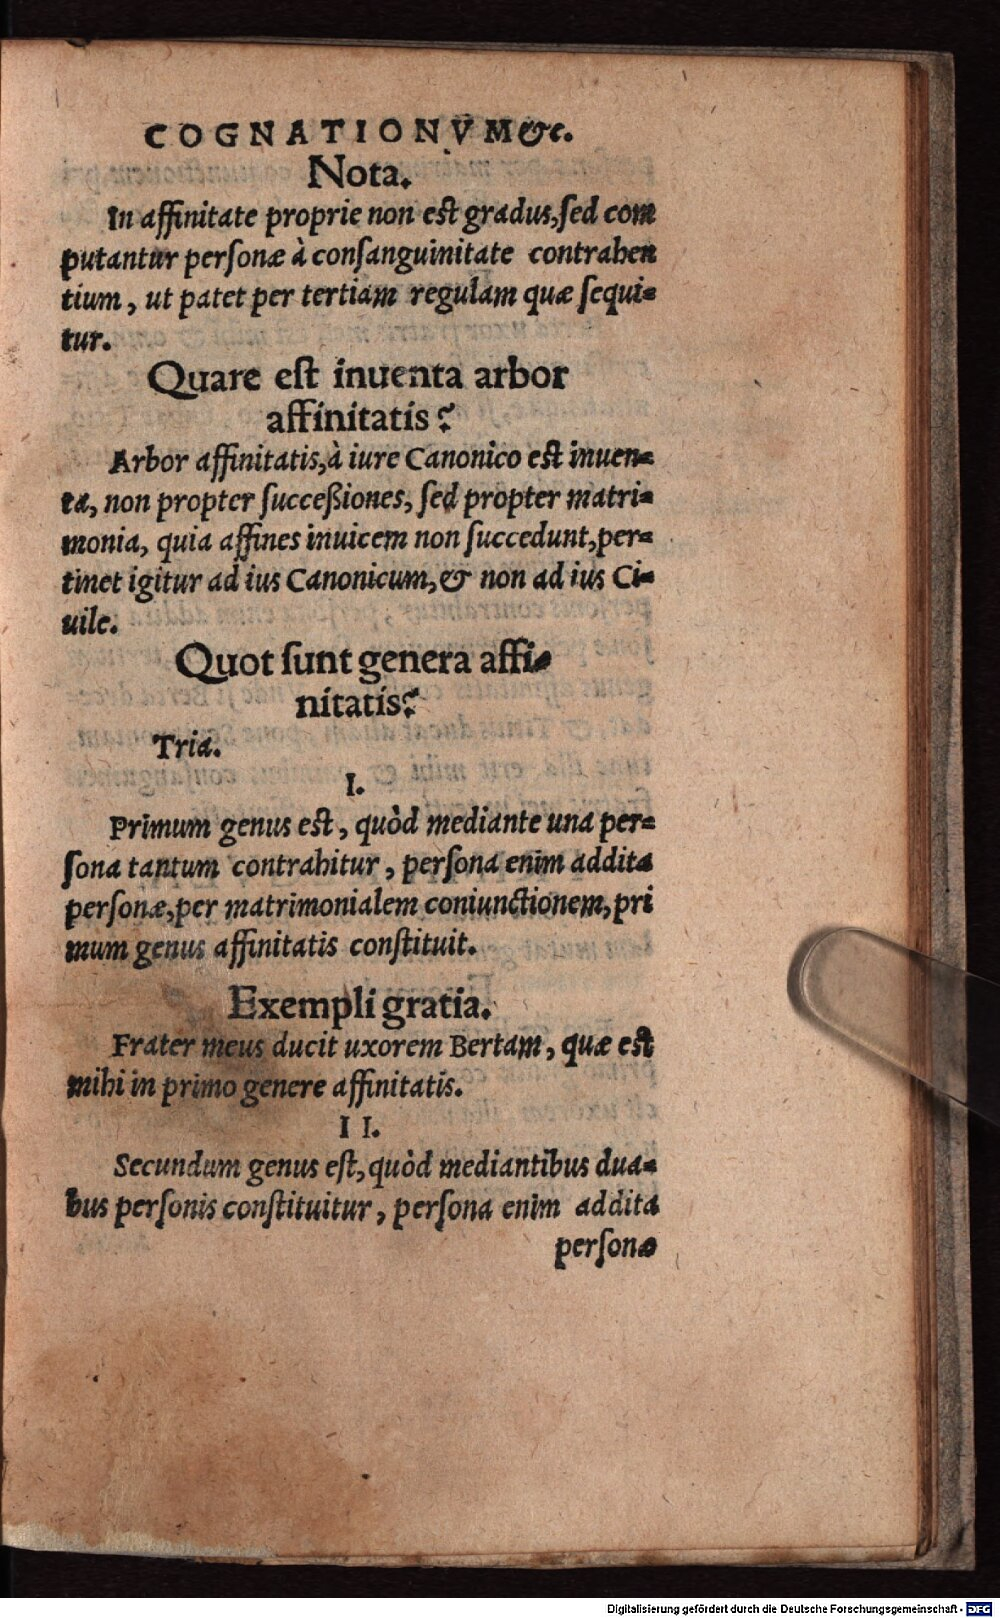 COGNATIONVM &c.
Nota.
In affinitate proprie non est gradus, sed com
putantur personæ à consanguinitate contrahen
tium, ut patet per tertiam regulam quæ sequi-
tur.
Quare est inuenta arbor
affinitatis?
Arbor affinitatis, à iure Canonico est inuen-
ta, non propter succeßiones, sed propter matri-
monia, quia affines inuicem non succedunt, per-
tinet igitur ad ius Canonicum, & non ad ius Ci-
uile.
Quot sunt genera affi-
nitatis?
Tria.
I.
Primum genus est, quòd mediante una per-
sona tantum contrahitur, persona enim addita
personæ, per matrimonialem coniunctionem, pri
mum genus affinitatis constituit.
Exempli gratia.
Frater meus ducit uxorem Bertam, quæ est
mihi in primo genere affinitatis.
II.
Secundum genus est, quòd mediantibus dua-
bus personis constituitur, persona enim addita
personæ
Digitalisierung gefördert durch die Deutsche Forschungsgemeinschaft - DFG